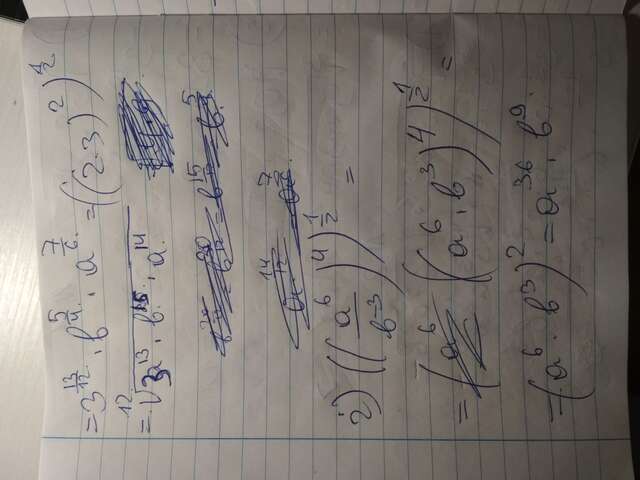 = 3^{13/12} · b^{5/4} · a^{7/6} = ((2·3)^2)^{1/2}
= \sqrt[12]{3^{13} · b^{15} · a^{14}}
2) ((a^6/b^{-3})^4)^{1/2} =
= ((a^6 · b^3)^4)^{1/2} =
= (a^6 · b^3)^2 = a^{36} · b^9.